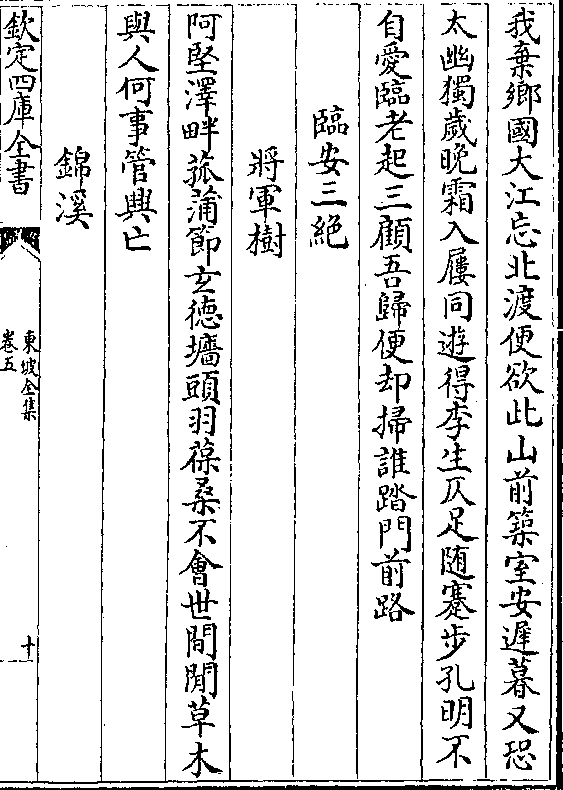 我棄鄉國大江忘北渡便欲此山前築室安遲暮又恐
太幽獨歲晚霜入屨同遊得李生仄足随蹇步孔明不
自愛臨老起三顧吾歸便却掃誰踏門前路
臨安三絶
將軍樹
阿堅澤畔菰蒲節玄德墻頭羽葆桑不會世間閒草木
與人何事管興亡
錦溪
欽定四庫全書
東坡全集
卷五
十